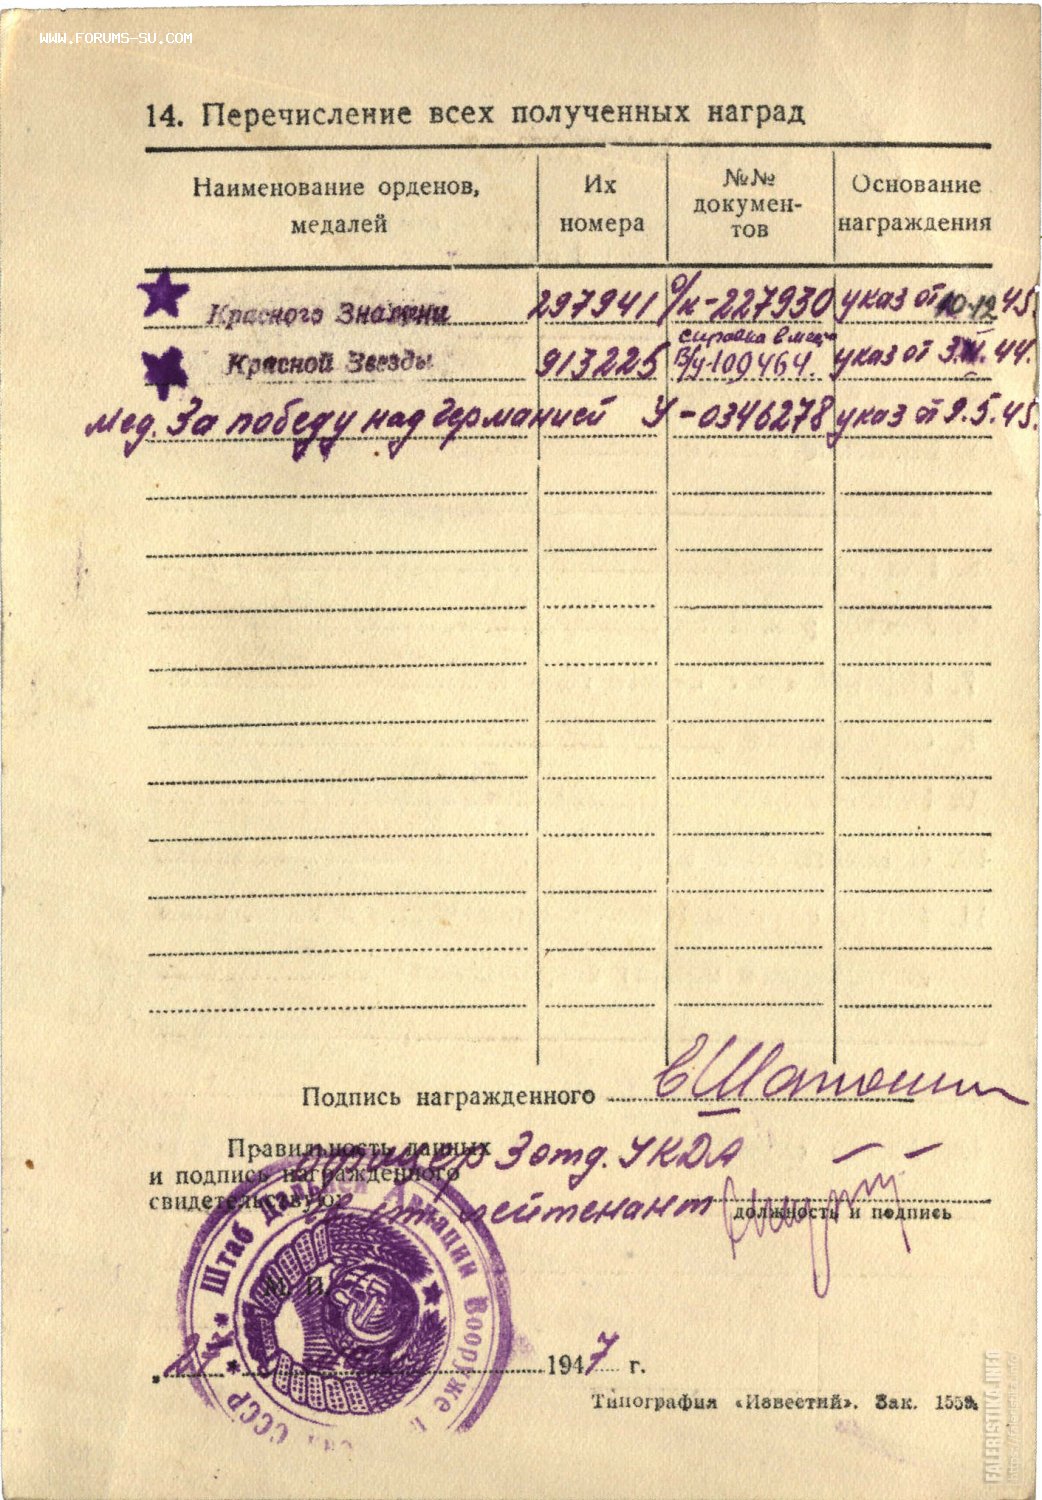 WWW.FORUMS-SU.COM
14. Перечисление всех полученных наград
Наименование орденов, медалей
Их номера
№№ докумен-тов
Основание награждения
Красного Знамени 297941 о/к-227930 указ от 10.12.45
Красной Звезды 913225 справка в/у-109464. указ от 3. .44.
Мед. За победу над Германией У-0346278 указ от 9.5.45.
Подпись награжденного Шапошн
Правильность данных
и подпись награжденного
свидетельствую:
офицер 3 отд. УКДА
лейтенант
должность и подпись
М. П.
Штаб Дальней Авиации Вооруже СССР
1947 г.
Типография «Известий». Зак. 1559
FALERISTIKA.INFO